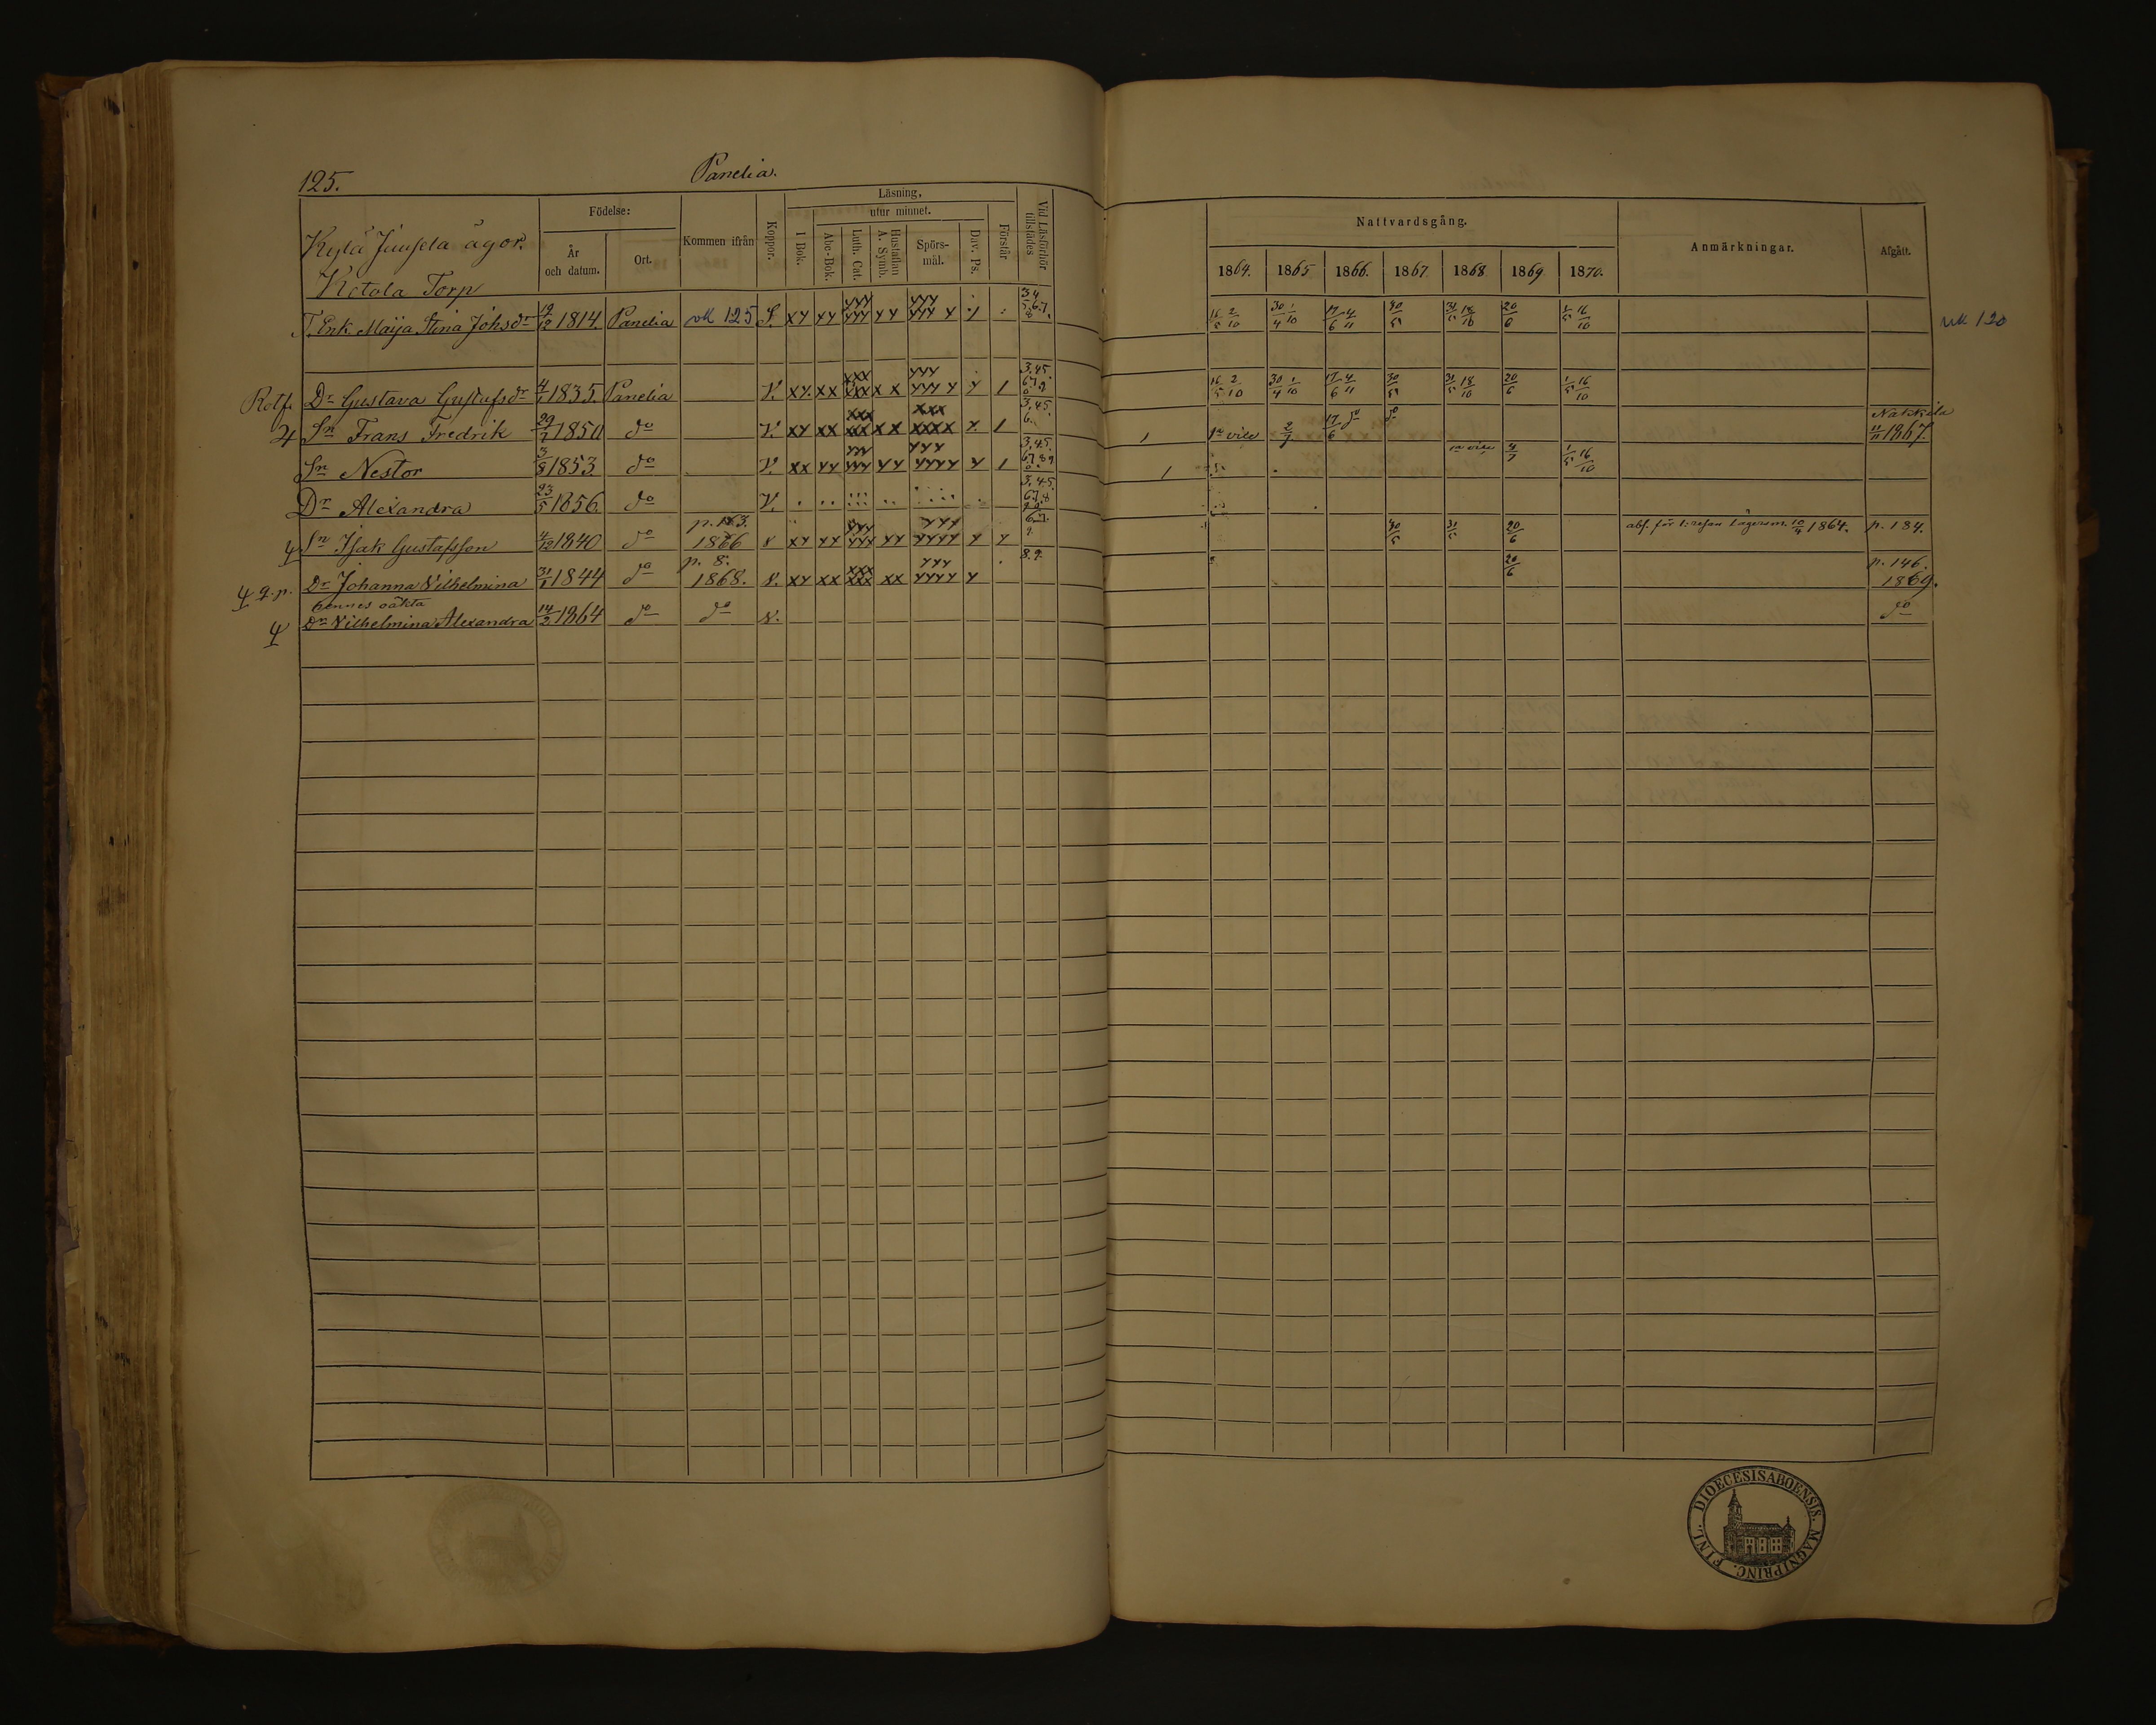 125.
Panelia.
Kylä Juusela ägor.
Ketola Torp
Födelse:
År och datum.
Ort.
Kommen ifrån
Koppor.
Läsning,
utur minnet.
I Bok.
Abc-Bok.
Luth. Cat.
Hustaflan A. Symb.
Spörs-mål.
Dav. Ps.
Förstår
Vid Läsförhör tillstädes
Nattvardsgång.
1864. 1865 1866. 1867. 1868 1869 1870.
Anmärkningar.
Afgått.
T. Enk. Maija Stina Johsdr 19/12 1814. Panelia vk 125 S. xy xy yyy yyy yy yyy yyy y y 3.4 5.6.7. 8 15/5 2/10 30/4 1/10 17/6 4/11 30/5 31/5 18/10 20/6 1/5 16/10 uk 120
Rotf. Dr Gustava Gustafsdr 4/1 1835. Panelia V. xy. xx xxx xxx x x yyy yyy y y 1 3.4.5. 6.7.9. 0 15/5 2/10 30/4 1/10 17/6 4/11 30/5 31/5 18/10 20/6 1/5 16/10
4 Sn Frans Fredrik 29/7 1850 do V. xy xx xxx xxx x x xxx xxxx y. 1 3.4.5. 6. 1 1a vice 2/7 17/6 do do Nakkila 11/11 1867.
Sn Nestor 3/8 1853. do V. xx yy yyy yyy yy yyy yyyy y 1 3.4.5. 6.7.8.9 0. 1 1a vice 4/7 1/5 16/10
Dr Alexandra 23/5 1856. do V. 3.4.5. 6.7.8 9.0.
4 Sn Isak Gustafsson 4/12 1840 do p. 163. 1866 v xy yy yyy yyy yy yyy yyyy y y 6.7. 9. 30/5 31/5 20/6 abs. för 1:resan lägersm. 10/9 1864. p. 184.
4 q.p. Dr Johanna Vilhelmina 31/1 1844 do p. 8. 1868. v. xy xx xxx xxx xx yyy yyyy y 8.9. 20/6 p. 146. 1869.
4 hennes oäkta
Dr Vilhelmina Alexandra 14/2 1864 do do v. do
FINL. DIOECESIS ABOENSIS. MAGNI PRINC.